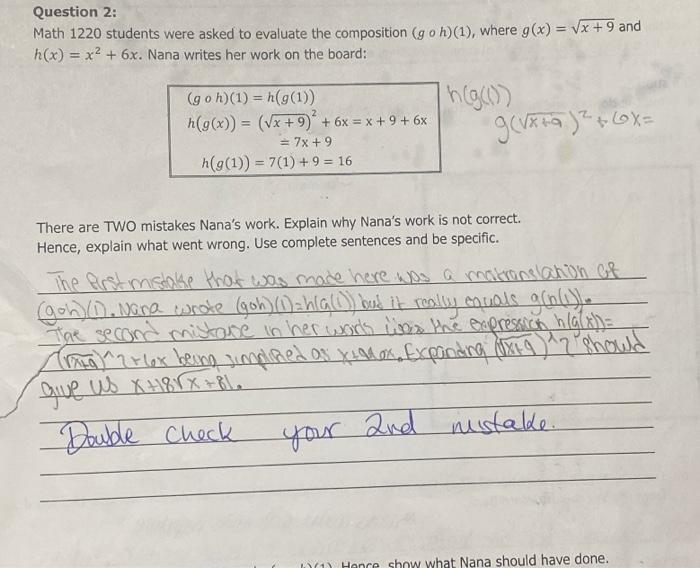 Question 2:
Math 1220 students were asked to evaluate the composition (g o h)(1), where g(x) = √x + 9 and
h(x) = x² + 6x. Nana writes her work on the board:
(g o h)(1) = h(g(1))
h(g(x)) = (√x + 9)² + 6x = x + 9 + 6x
= 7x + 9
h(g(1)) = 7(1) + 9 = 16
h(g(1))
g(√x+9)² + 6x =
There are TWO mistakes Nana's work. Explain why Nana's work is not correct.
Hence, explain what went wrong. Use complete sentences and be specific.
The first mistake that was made here was a of
(goh)(1). Nana wrote (goh)(1)=h(g(1)) but it really equals
The second mistake in her work was the expression h(g(x))=
(√x+9)^2+6x being simplified as Expanding (√x+9)^2 should
give us x+18√x+81.
Double check your 2nd mistake.
(1) Hence show what Nana should have done.